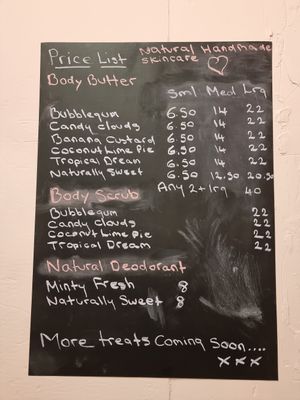 Price List
Natural Handmade
skincare
Body Butter
Sml Med Lrg
Bubblegum 6.50 14 22
Candy Clouds 6.50 14 22
Banana Custard 6.50 14 22
Coconut Lime Pie 6.50 14 22
Tropical Dream 6.50 14 22
Naturally Sweet 6.50 12.50 20.50
Any 2 + lrg 40
Body Scrub
Bubblegum 22
Candy Clouds 22
Coconut Lime Pie 22
Tropical Dream 22
Natural Deodorant
Minty Fresh 8
Naturally Sweet 8
More treats Coming Soon....
x x x